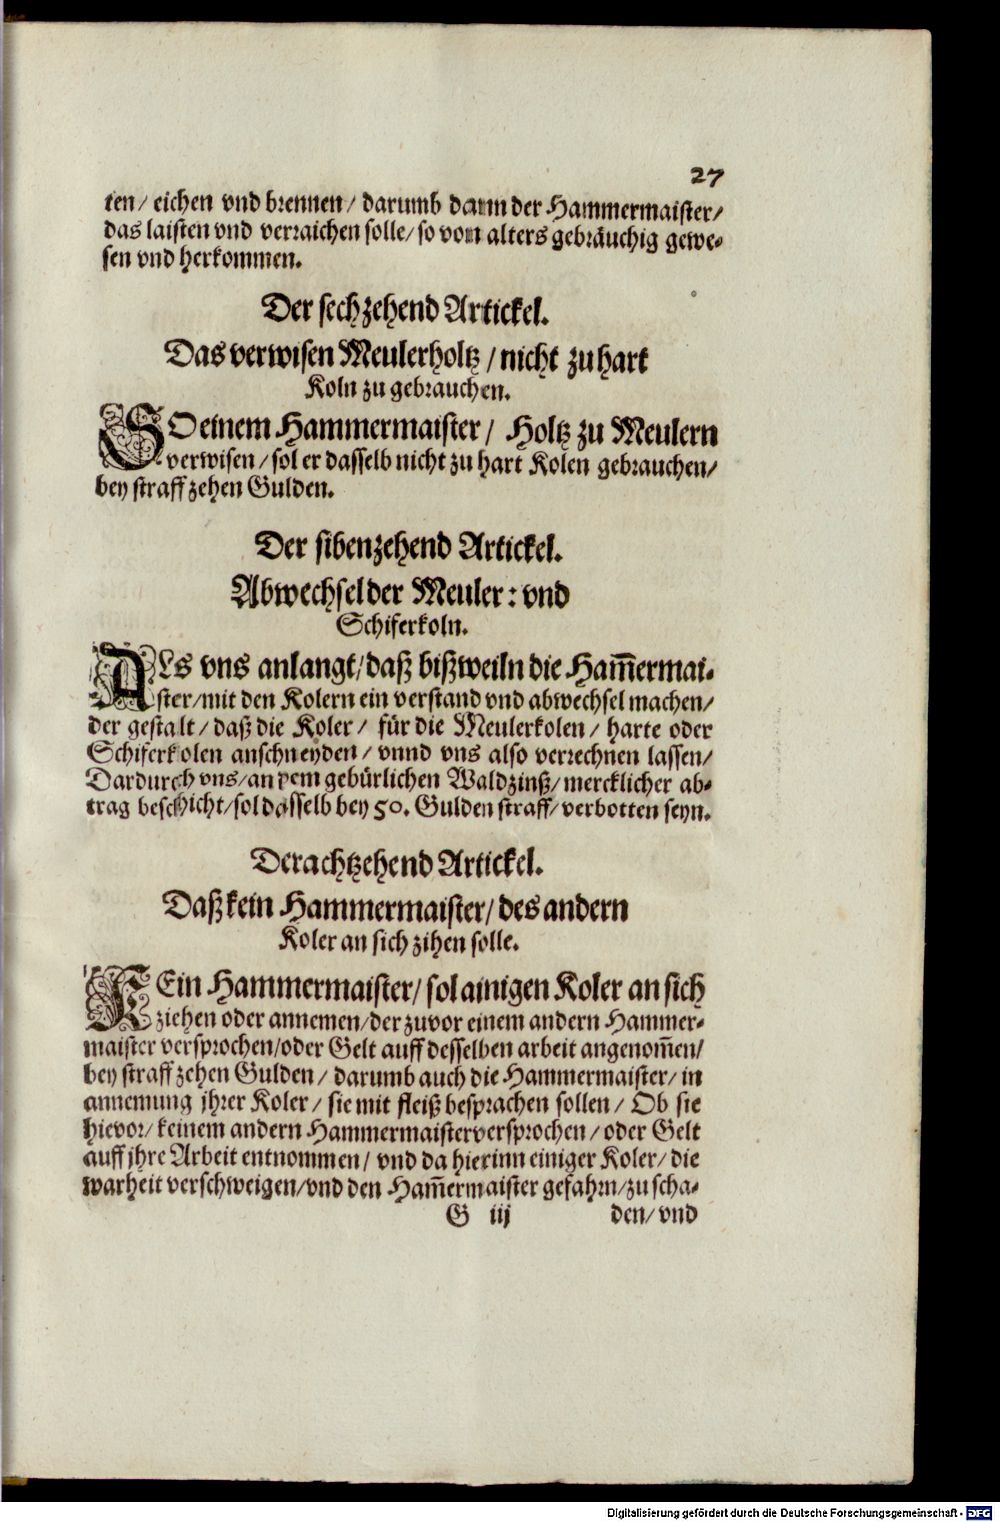 27
ten/ eichen vnd brennen/ darumb dann der Hammermaister/
das laisten vnd verraichen solle/ so von alters gebräuchig gewe-
sen vnd herkommen.
Der sechzehend Artickel.
Das verwisen Meulerholtz/ nicht zu hart
Koln zu gebrauchen.
SO einem Hammermaister/ Holtz zu Meulern
verwisen/ sol er dasselb nicht zu hart Kolen gebrauchen/
bey straff zehen Gulden.
Der sibenzehend Artickel.
Abwechsel der Meuler: vnd
Schiferkoln.
ALs vns anlangt/ daß bißweiln die Ham̅ermai-
ster/ mit den Kolern ein verstand vnd abwechsel machen/
der gestalt/ daß die Koler/ für die Meulerkolen/ harte oder
Schiferkolen anschneyden/ vnnd vns also verrechnen lassen/
Dardurch vns/ an dem gebürlichen Waldzinß/ mercklicher ab-
trag beschicht/ sol dasselb bey 50. Gulden straff/ verbotten seyn.
Der achtzehend Artickel.
Daß kein Hammermaister/ des andern
Koler an sich zihen solle.
KEin Hammermaister/ sol ainigen Koler an sich
ziehen oder annemen/ der zuvor einem andern Hammer-
maister versprochen/ oder Gelt auff desselben arbeit angenom̅en/
bey straff zehen Gulden/ darumb auch die Hammermaister/ in
annemung jhrer Koler/ sie mit fleiß besprachen sollen/ Ob sie
hievor/ keinem andern Hammermaister versprochen/ oder Gelt
auff jhre Arbeit entnommen/ vnd da hierinn einiger Koler/ die
warheit verschweigen/ vnd den Ham̅ermaister gefahrn/ zu scha-
G iij den/ vnd
Digitalisierung gefördert durch die Deutsche Forschungsgemeinschaft - DFG